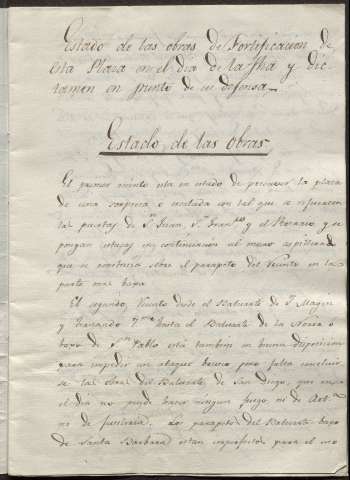 Estado de las obras de Fortificacion de
esta Plaza en el dia de la fha y dic-
tamen en punto de su defensa
Estado de las obras
El primer recinto esta en estado de preservar la plaza
de una sorpresa o escalada con tal que se refuercen
las puertas de Sn Juan, Sn Franco y el Rosario y se
pongan estacas en continuacion al muro aspillerado
que se construia sobre el parapeto del Recinto en la
parte mas baja
El segundo Recinto desde el Baluarte de
y hasta el Baluarte de la
bajo de Sn Pablo está tambien en buena disposicion
para impedir un ataque brusco pero falta concluir-
se las obras del Baluarte de San Diego, que en
el dia no puede hacer ningun fuego ni de Art
ni de fusileria. Los parapetos del Baluarte bajo
de Santa Barbara estan imperfectos para el uso